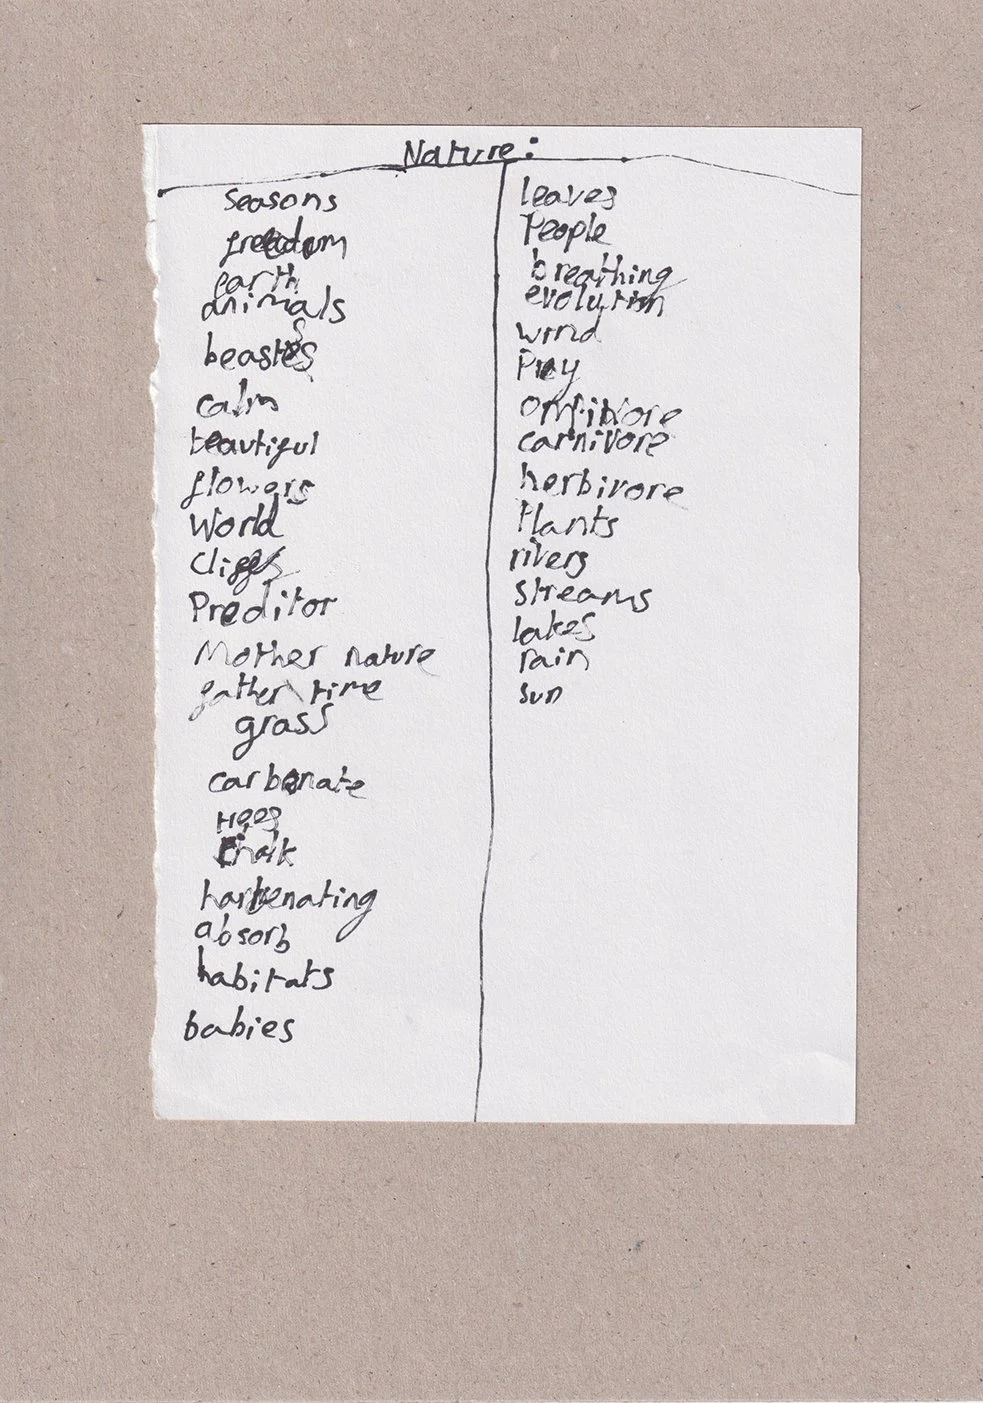 Nature:
seasons
freedom
earth
animals
beasts
calm
beautiful
flowers
World
Cliffs
Preditor
Mother nature
father time
grass
carbonate
trees
chalk
absorb
habitats
babies
leaves
People
breathing
evolution
wind
Prey
carnivore
herbivore
Plants
rivers
streams
lakes
rain
sun